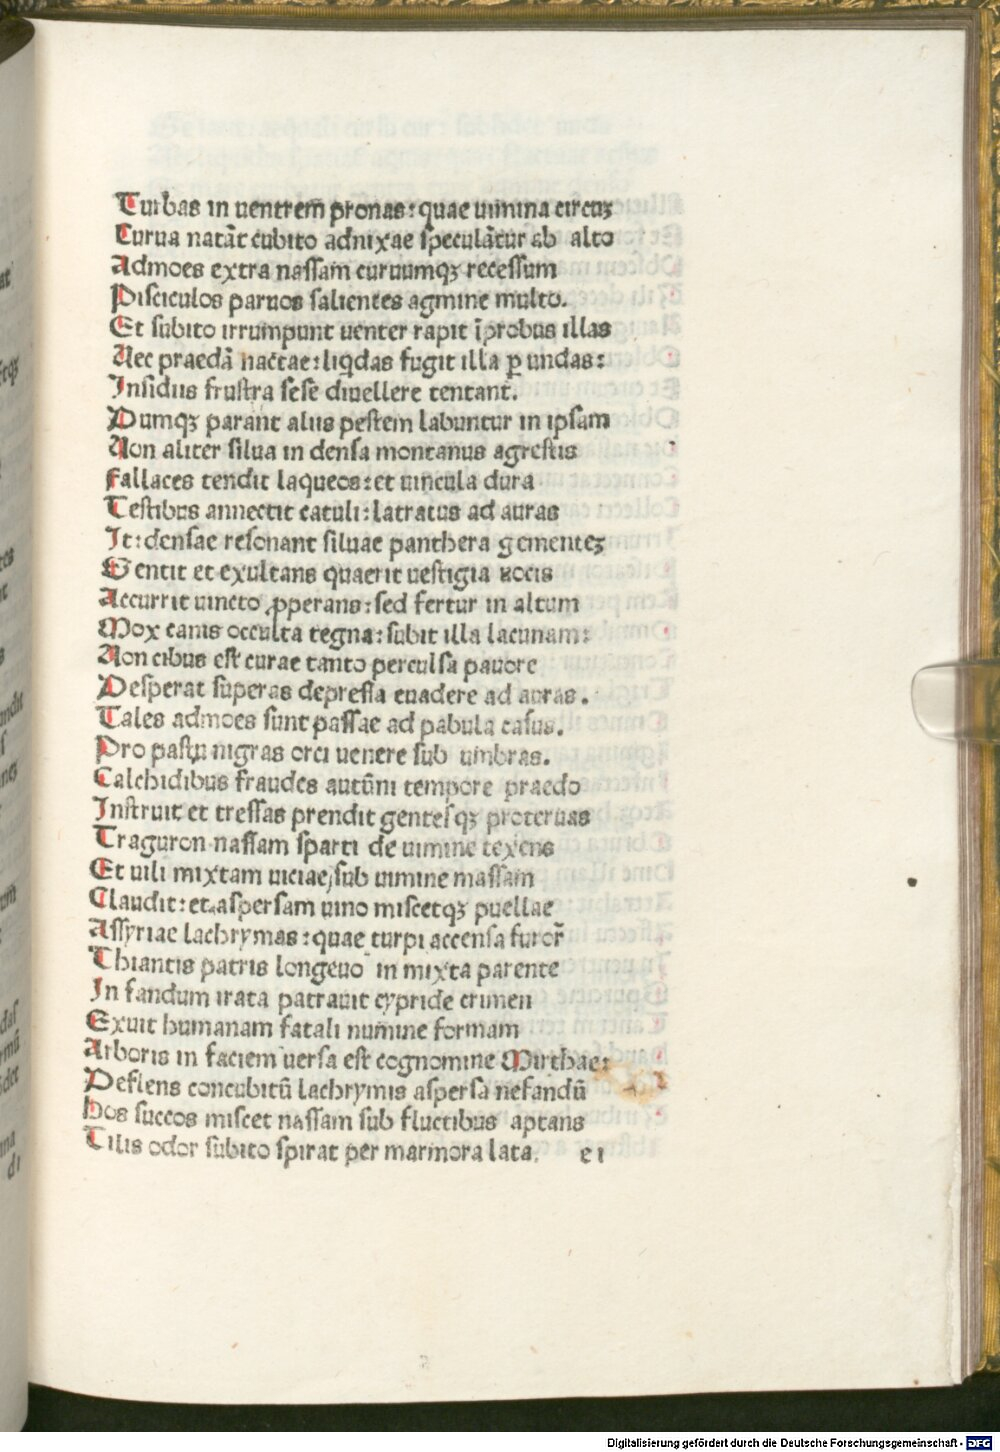 Turbas in uentrem̄ pronas: quae uimina circuꝫ
Curua natāt cubito adnixae speculātur ab alto
Admoes extra nassam curuumqꝫ recessum
Pisciculos paruos salientes agmine multo.
Et subito irrumpunt uenter rapit īprobus illas
Nec praedā nactae: liqdas fugit illa ꝑ undas:
Insidiis frustra sese diuellere tentant.
Dumqꝫ parant aliis pestem labuntur in ipsam
Non aliter silua in densa montanus agrestis
Fallaces tendit laqueos: et uincula dura
Testibus annectit catuli: latratus ad auras
It: densae resonant siluae panthera gementeꝫ
Sentit et exultans quaerit uestigia uocis
Accurrit uincto ꝓperans: sed fertur in altum
Mox canis occulta tegna: subit illa lacunam:
Non cibus est curae tanto perculsa pauore
Desperat superas depressa euadere ad auras.
Tales admoes sunt passae ad pabula casus.
Pro pastu nigras orci uenere sub umbras.
Calchidibus fraudes autūni tempore praedo
Instruit et tressas prendit gentesqꝫ proteruas
Traguron nassam sparti de uimine texens
Et uili mixtam uiciae, sub uimine massam
Claudit: et aspersam uino miscetqꝫ puellae
Assyriae lachrymas: quae turpi accensa furor̄
Thiantis patris longeuo in mixta parente
In fandum irata patrauit cypride crimen
Exuit humanam fatali numine formam
Arboris in faciem uersa est cognomine Mirthae:
Deflens concubitū lachrymis aspersa nefandū
Hos succos miscet nassam sub fluctibus aptans
Tilis odor subito spirat per marmora lata. ei
Digitalisierung gefördert durch die Deutsche Forschungsgemeinschaft - DFG